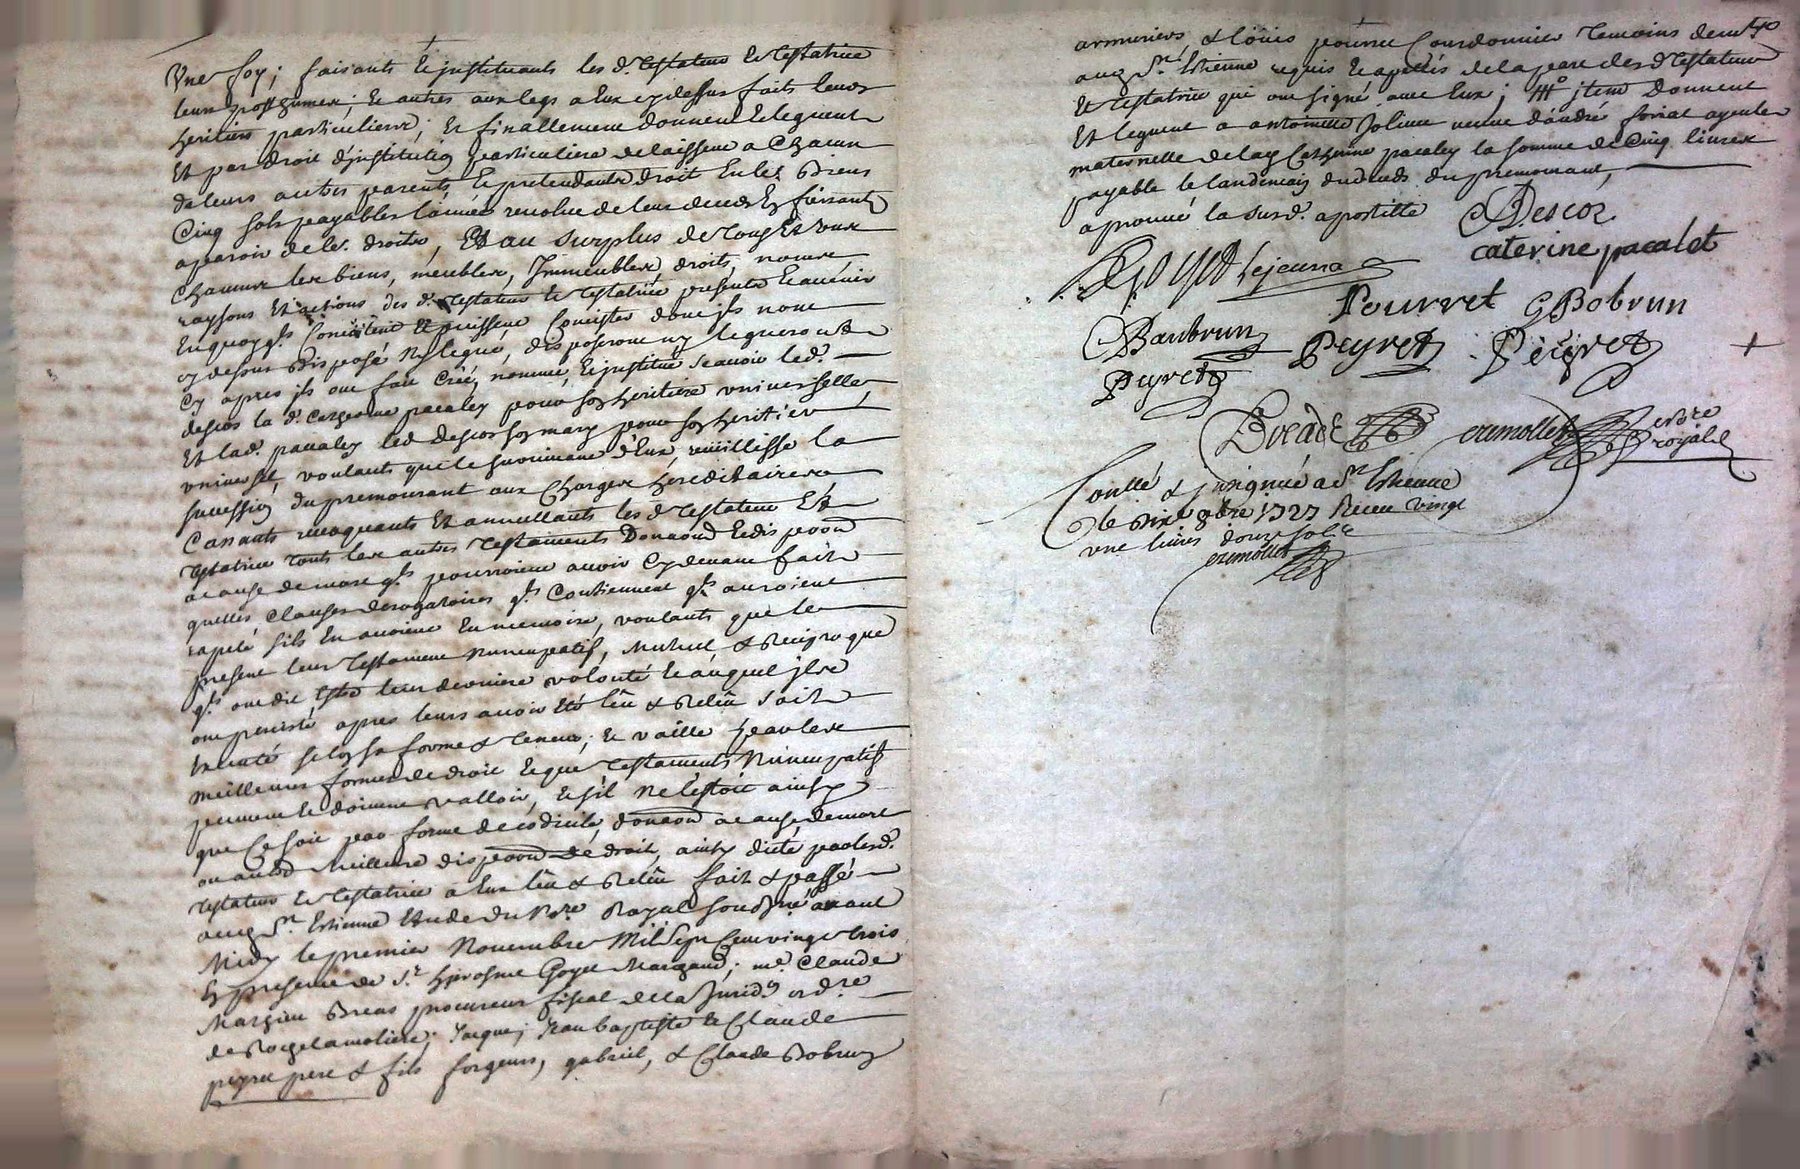 Une foy; faisants & justituants les d. testateur & testatrice
leurs posthumes; & autres aux legs a Eux cy dessus faits leurs
heritiers particuliers; Et finallement donnent & leguent
Et par droit d'justitution particuliere delaissent a Chacun
de leurs autres parents & pretendants droit En les Biens
Cinq sols payables l'année revolue de leur deceds En faisants
aparoir de les droits, Et au surplus de tous Et uns
Chacuns les biens, meubles, Immeubles, droits, noms
raysons Et actions des d. testateur & testatrice presents & avenir
En quoy qls Consistent Et puissent Consister dont jls nont
cy dessus disposé ny legué, disposeront ny legueront
Cy apres jls ont fait Créé, nommé, & justitué Scavoir led.
descos la d. Catherine pacalet pour son heritiere universelle
Et lad. pacalet led Descos son mary pour son heritier
universel, voulants que le survivant d'Eux, recüillisse la
succession du premourant aux Charges hereditaires
Cassants revoquants Et annullants les d testateur Et
testatrice tous les autres testaments Donaons & dispoons
a cause de mort qls pourroient avoir Cy devant faits
quelles Clauses derogatoires qls Contiennent qls auroient
rapelé sils En avoient En memoire, voulants que le
present leur testament nuncupatif, mutuel & reciproque
qls ont dit Estre leur derniere volonté & auquel jls
ont persisté apres leurs avoir été lëu & relëu soit
Executé selon sa forme & teneur; & vaille par les
meilleures formes de droit & que testaments nuncupatifs
peuvent & doivent valloir, & sil ne l'estoit ainsy
que Ce soit par forme de codicile, donaon a cause de mort
ou autre meilleure dispoon de droit, ainsy dicté par lesd.
testateur & testatrice a Eux lëu & relëu fait & passé
aud St. Estienne Etude du nore Royal soussigné avant
Midy le premier Novembre mil sept Cent vingt trois
En presence de Sr. hierosme Goyet Marchand; me. Claude
Mathieu Breas procureur fiscal de la Juridn ordre
de Rochelamoliere; Jacques; Jean baptiste & Claude
peyret pere & fils forgeurs, gabriel, & Claude Bobrun
armuriers & loüis pourret Courdonnier temoins demts
aud St. Estienne requis & apellés de la part des d testateur
Et testatrice qui ont signé avec Eux; jtem Donnent
Et leguent a antoinette Jolivet veuve d'andré foriat ayeule
maternelle de lad Catherine pacalet la somme de Cinq livres
payable le landemain du deceds du premourant,
aprouvé la susd. apostille
Descos
caterine pacalet
Goyet Lejeune
Pourret G Bobrun
Baubrun
Peyret Peyret
Peyret
Breade crimollet nore royal
Contlé & jnsignué a St Estienne
le dix 9bre 1723 Receu vingt
une livres douze sols
crimollet